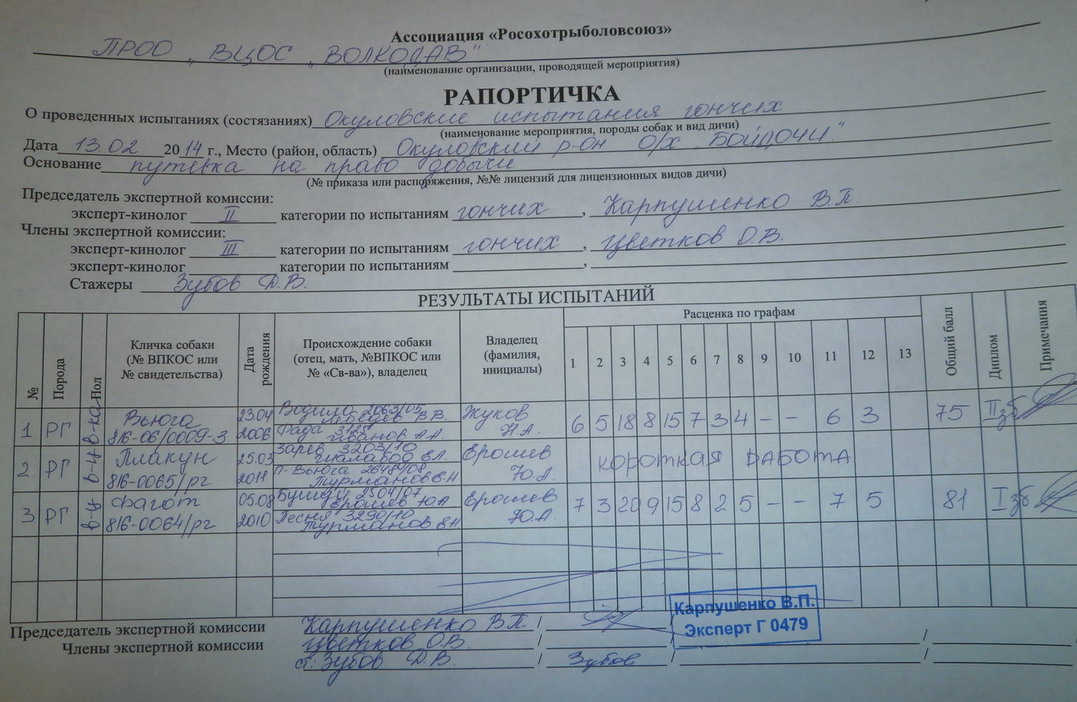 Ассоциация «Росохотрыболовсоюз»
ПРОО „ ВЦОС „ ВОЛКОДАВ"
(наименование организации, проводящей мероприятия)
РАПОРТИЧКА
О проведенных испытаниях (состязаниях) Окуловские испытания гончих
(наименование мероприятия, породы собак и вид дичи)
Дата 13.02 2014 г., Место (район, область) Окуловский р-он о/х „Бойдочи"
Основание путёвка на право добычи
(№ приказа или распоряжения, №№ лицензий для лицензионных видов дичи)
Председатель экспертной комиссии:
эксперт-кинолог II категории по испытаниям гончих , Карпушенко В.П
Члены экспертной комиссии:
эксперт-кинолог III категории по испытаниям гончих , Цветков О.В.
эксперт-кинолог категории по испытаниям ,
Стажеры Зубов Д.В.
РЕЗУЛЬТАТЫ ИСПЫТАНИЙ
№ Порода Пол Кличка собаки (№ ВПКОС или № свидетельства) Дата рождения Происхождение собаки (отец, мать, №ВПКОС или № «Св-ва»), владелец Владелец (фамилия, инициалы) Расценка по графам Общий балл Диплом Примечания
1 2 3 4 5 6 7 8 9 10 11 12 13
1 РГ в-ка Вьюга 816-06/0009-3 23.04 2006 2063/05 В.В. Фада Иванов А.А. Жуков Н.А. 6 5 18 8 15 7 3 4 - - 6 3 75 II зб
2. РГ в-ц Плакун 816-0065/рг 25.03 2011 3203/10 П-Вьюга 2648/08 Турманов Ерошев Ю.А. короткая работа
3 РГ в-ц Фагот 816-0064/рг 05.08 2010 2504/07 Ерошев Ю.А Песня 3290/10 Турманов Ерошев Ю.А. 7 3 20 9 15 8 2 5 - - 7 5 81 I зб
Карпушенко В.П.
Эксперт Г 0479
Председатель экспертной комиссии Карпушенко В.П. /
Члены экспертной комиссии Цветков О.В. / /
ст. Зубов Д.В. / Зубов /